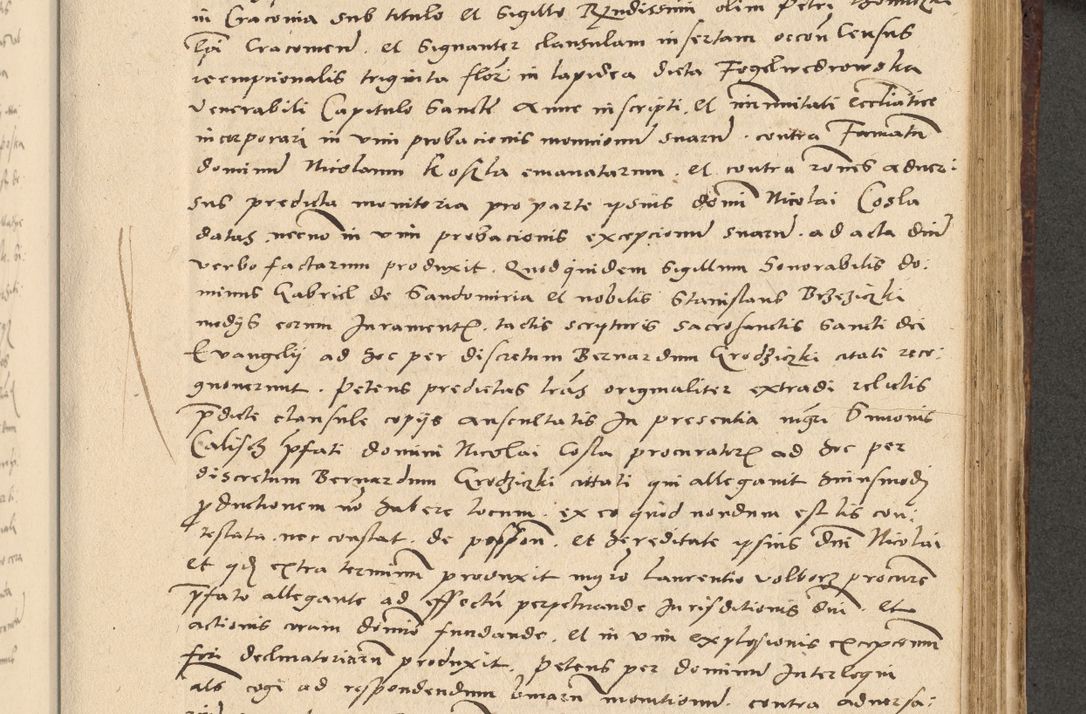 in Craconia sub titulo et Sigillo Rndissimi olim Petri
Epi Cracovien. et Signanter clausulam insertam Census
reempcionalis triginta flor in lapidea dicta Fogelwedrowska
venerabili Capitulo Sancte Anne inscripti. et immunitati eccliastice
incorporari in vim probacionis monicionum suarum. contra Famatum
dominum Nicolaum Koszla emanatarum. et contra rones adver:
sus predicta monitoria pro parte ipsius domi Nicolai Cosla
datas. necno in vim probacionis excepcionum suarum. ad acta dni
verbo factarum produxit. Quod quidem Sigillum honorabilis do:
minus Gabriel de Sandomiria et nobilis Stanislaus Brzeziczki
medys eorum Iuramentis. tactis scripturis sacrosanctis Sancti dei
Evangelij ad hoc per discretum Bernardum Grodziczki citati reco:
gnoverunt. Petens predictas lras originaliter extradi relictis
pdicte clausule copijs auscultatis In presentia mgri Simonis
Calisch pfati domini Nicolai Cosla procuratoris ad hoc per
discretum Bernardum Grodziczki cittati qui allegavit huiusmodi
productionem no habere locum. ex eo quod nondum est lis con:
testata. nec constat. de possion. et hereditate ipsius dni Nicolai
et qd extra terminum produxit mgro Laurentio Volborz procure
pfato allegante ad effectum perpetuande Iurisditionis dni. Et
actionis coram domino fundande. et in vim explosionis excepcionum
fori declinatoriarum produxit. Petens per dominum Interloqui
als cogi ad respondendum monitionum. contra adversa: